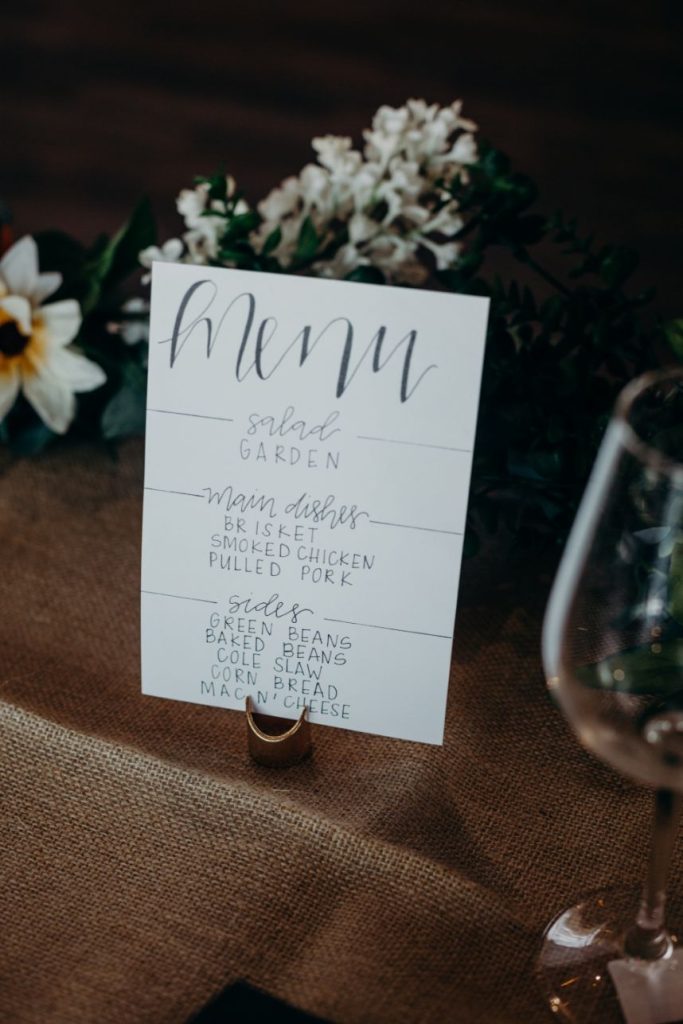 menu
salad
GARDEN
main dishes
BRISKET
SMOKED CHICKEN
PULLED PORK
sides
GREEN BEANS
BAKED BEANS
COLE SLAW
CORN BREAD
MAC N' CHEESE